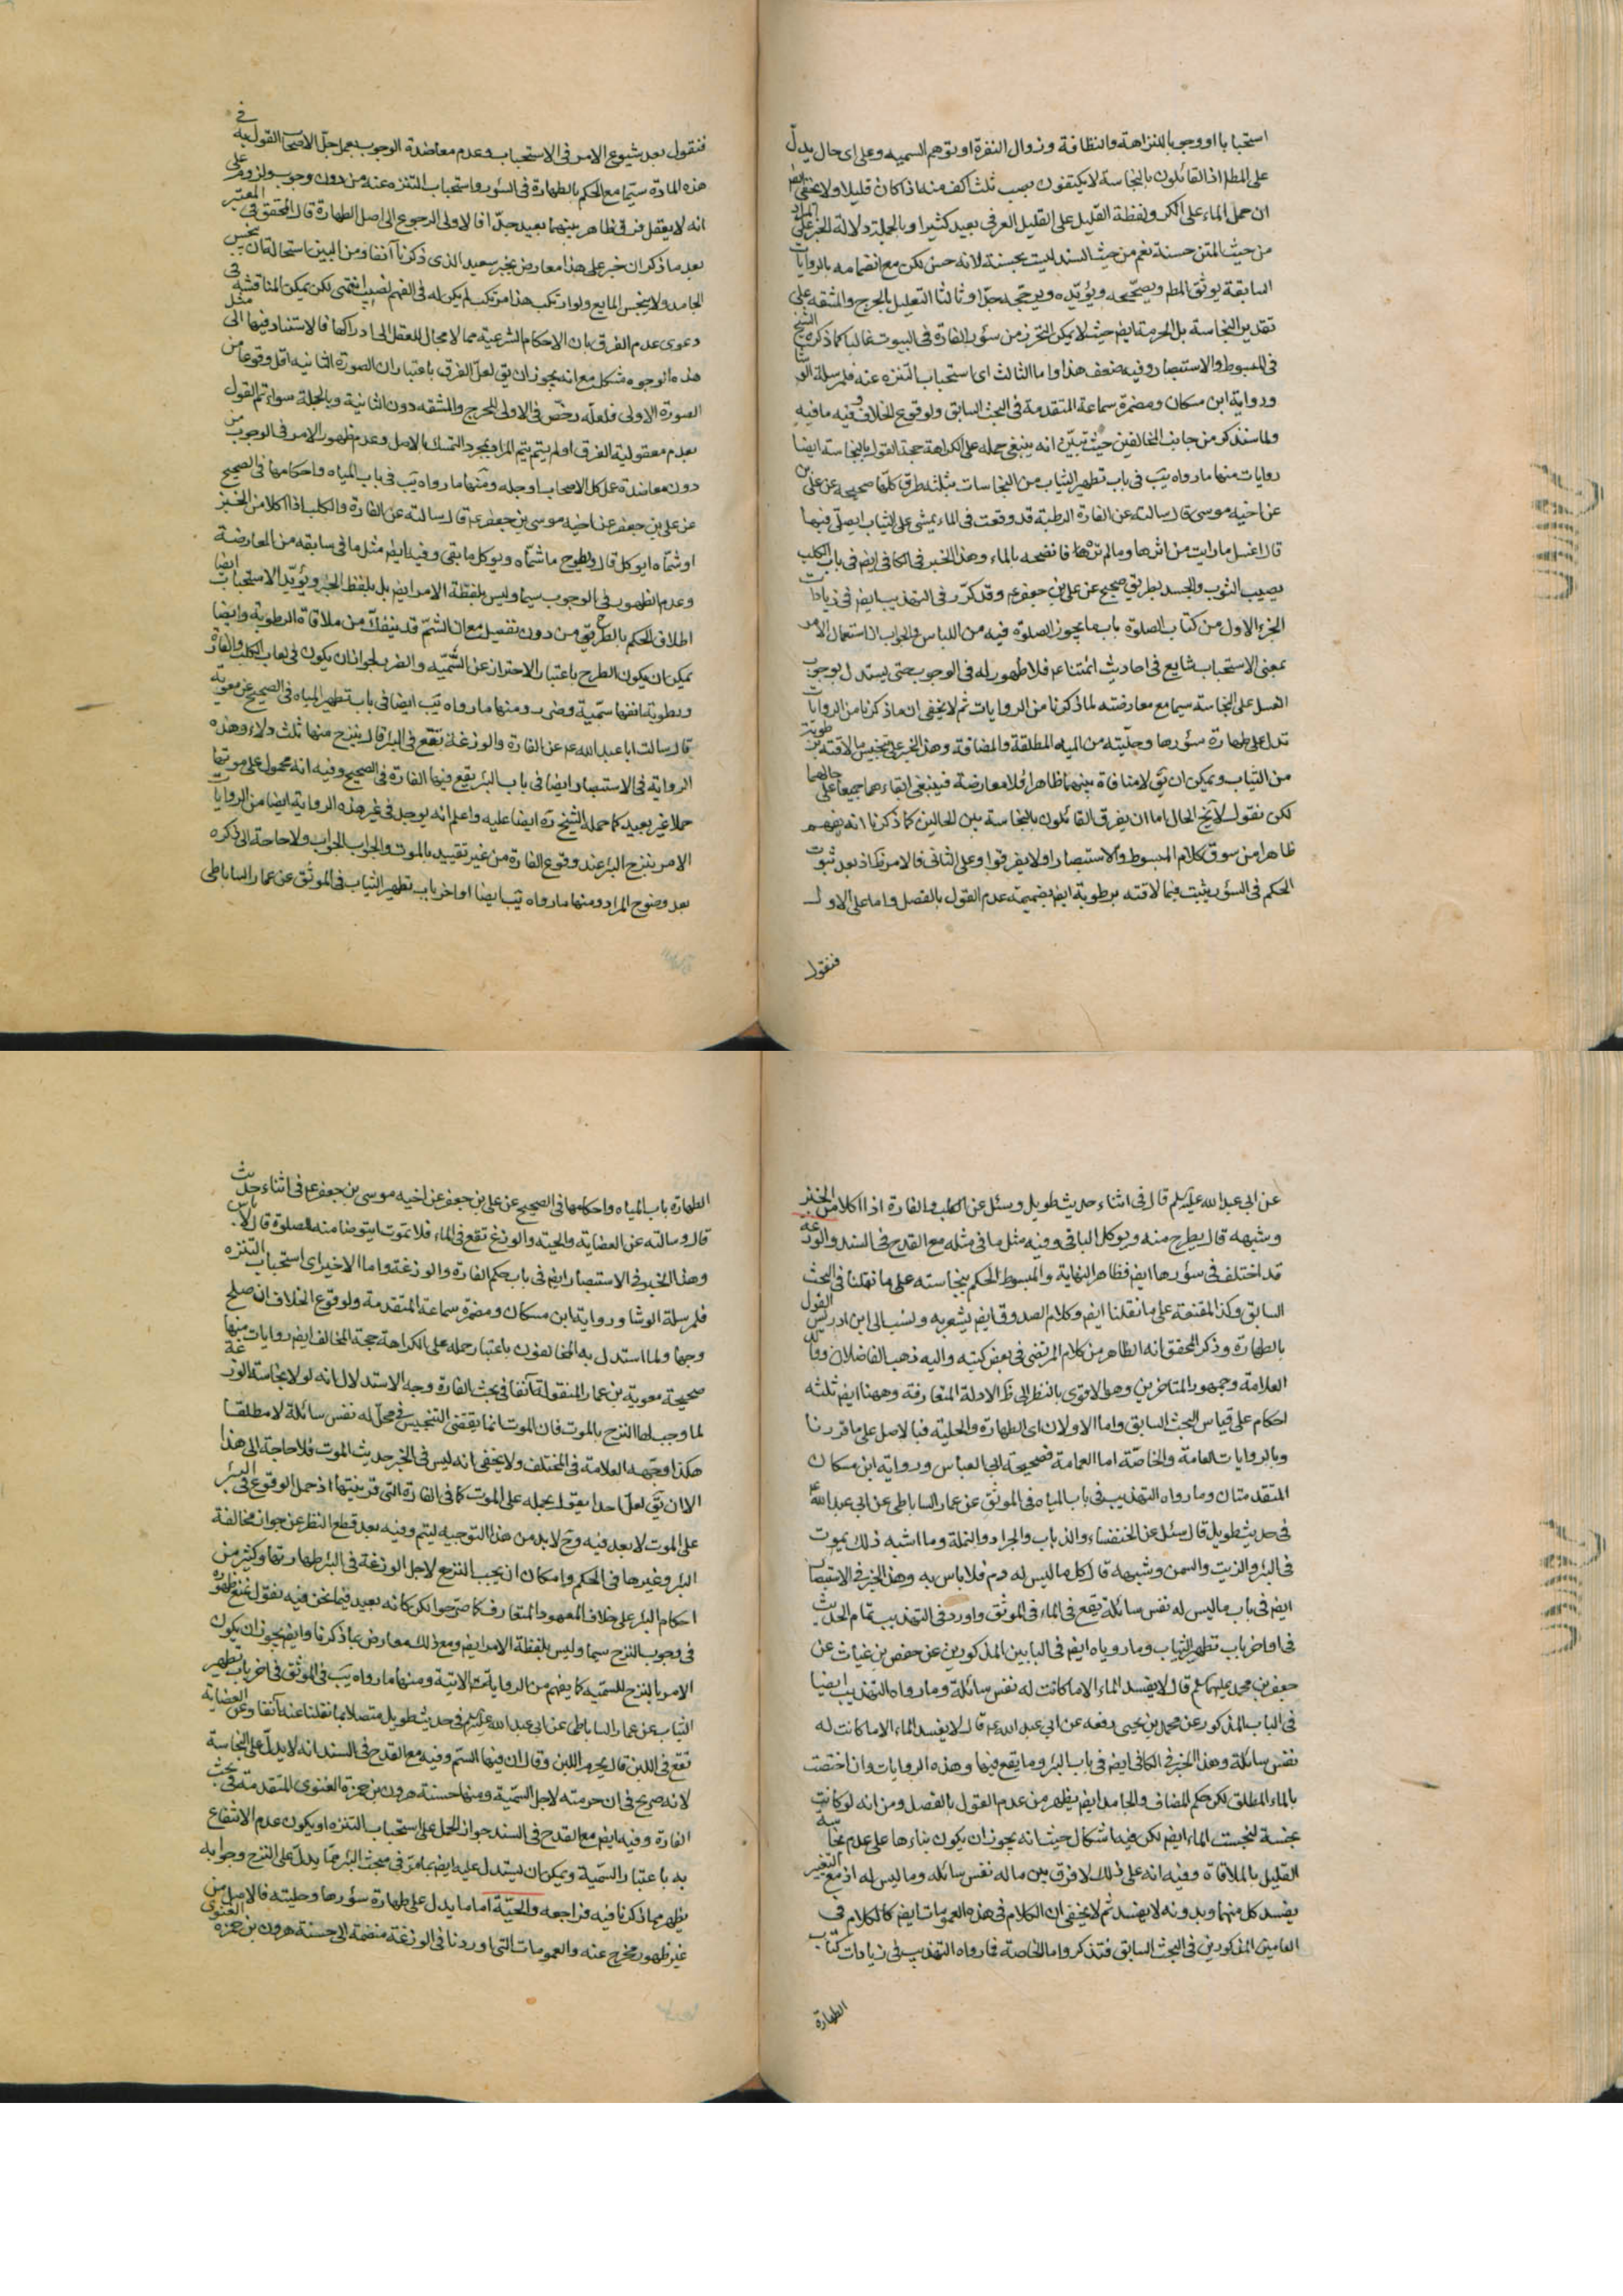 استحبابا او وجوبا للنزاهة والنظافة وزوال النفرة او توهم السميه وعلى اى حال يدلّ
على المط اذ القائلون بالنجاسة لا يكتفون بصب ثلث اكف منه اذا كان قليلا ولا يخفى ايض
ان حمل الماء على الكر ولفظة القليل على القليل العرفى بعيد كثيرا وبالجملة دلالة الخبر على المراد
من حيث المتن حسنة نعم من حيث السند ليت بحسنة لانه حسن لكن مع انضمامه بالروايات
السابقة يوثق المط ويصحّحه ويؤيّده ويرجّحه جدّا وثالثا التعليل بالحرج والمشقه على
تقدير النجاسة بل الحرمة ايض حيث لا يمكن التحرز من سؤر الفارة فى البيوت غالبا كما ذكره الشيخ
فى المبسوط والاستبصار وفيه ضعف هذا واما الثالث اى استحباب التنزه عنه فلمرسلة الوشا
ورواية ابن مسكان ومضمرة سماعة المتقدمة فى البحث السابق ولوقوع الخلاف وفيه ما فيه
ولما سنذكر من جانب المخالفين حيث تبيّن انه ينبغى حمله على الكراهة حجة القول بالنجاسة ايضا
روايات منها ما رواه يَب فى باب تطهير الثياب من النجاسات بثلثه طرق كلّها صحيحه عن على بن
عن اخيه موسى قال سالته عن الفارة الرطبة قد وقعت فى الماء يمشى على الثياب ايصلّى فيها
قال اغسل ما رايت من اثرها وما لم تره فانضحه بالماء وهذا الخبر فى الكافى ايض فى باب الكلب
يصيب الثوب والجسد بطريق صحيح عن على بن جعفر ع وقد تكرّر فى التهذيب ايض فى زيادات
الجزء الاول من كتاب الصلوة باب ما يجوز الصلوة فيه من اللباس والجواب ان استعمال الامر
بمعنى الاستحباب شايع فى احاديث ائمتنا ع فلا ظهور له فى الوجوب حتى يستدل بوجوب
الغسل على النجاسة سيما مع معارضته لما ذكرنا من الروايات ثم لا يخفى ان ما ذكرنا من الروايات
تدل على طهارة سؤرها وحلّيته من المياه المطلقة والمضافة وهذا الخبر على تنجيس ما لاقته برطوبة
من الثياب ويمكن ان يَق لا منافاة بينهما ظاهرا ولا معارضة فينبغى ابقاءهما جميعا على حالهما
لكن نقول لا يخ الحال اما ان يفرق القائلون بالنجاسة بين الحالين كما ذكرنا انه يفهم
ظاهرا من سوق كلام المبسوط والاستبصار او لا يفرقوا وعلى الثانى فالامر ظ اذ بعد ثبوت
الحكم فى السؤر يثبت فيما لاقته برطوبة ايض بضميمة عدم القول بالفصل واما على الاول
فنقول
فنقول بعد شيوع الامر فى الاستحباب وعدم معاضدة الوجوب بعمل جلّ الاصحاب القول به فى
هذه المادّة سيّما مع الحكم بالطهارة فى السؤر واستحباب التنزه عنه من دون وجوب ولزوم على
انه لا يعقل فرق ظاهر بينهما بعيد جدّا فالاولى الرجوع الى اصل الطهارة قال المحقق فى المعتبر
بعد ما ذكر ان خبر على هذا معارض بخبر سعيد الذى ذكرنا آنفا ومن البين استحالة ان ينجس
الجامد ولا ينجس المايع ولو ارتكب هذا مرتكب لم يكن له فى الفهم نصيب انتهى لكن يمكن المناقشة فى
دعوى عدم الفرق بان الاحكام الشرعية مما لا مجال للعقل الى ادراكها فالاستناد فيها الى مثل
هذه الوجوه مشكل مع انه يجوز ان يق لعلّ الفرق باعتبار ان الصورة الثانيه اقل وقوعا من
الصورة الاولى فلعلّه رخّص فى الاولى للحرج والمشقه دون الثانية وبالجملة سواء تم القول
بعدم معقولية الفرق او لم يتم يتم المراد بمجرد التمسك بالاصل وعدم ظهور الامر فى الوجوب من
دون معاضدة عمل كل الاصحاب او جله ومنها ما رواه يَب فى باب المياه واحكامها فى الصحيح
عن على بن جعفر عن اخيه موسى بن جعفر ع قال سالته عن الفارة والكلب اذا اكلا من الخبز
او شمّاه ايوكل قال يطرح ما شمّاه ويوكل ما بقى وفيه ايض مثل ما فى سابقه من المعارضة
وعدم الظهور فى الوجوب سيما وليس بلفظة الامر ايض بل بلفظ الخبر ويؤيّد الاستحباب ايضا
اطلاق الحكم بالطرح من دون تفصيل مع ان الشمّ قد ينفكّ من ملاقاة الرطوبة وايضا
يمكن ان يكون الطرح باعتبار الاحتراز عن السّميّه والضرر لجواز ان يكون فى لعاب الكلب والفارة
ورطوبة انفها سمّية وضرر ومنها ما رواه يَب ايضا فى باب تطهير المياه فى الصحيح عن معوية
قال سالت ابا عبد الله ع عن الفارة والوزغة تقع فى البئر قال ينزح منها ثلث دلاء وهذه
الرواية فى الاستبصار ايضا فى باب البئر يقع فيها الفارة فى الصحيح وفيه انه محمول على موتهما
حملا غير بعيد كما حمله الشيخ ره ايضا عليه واعلم انه يوجد فى غير هذه الرواية ايضا من الروايات
الامر بنزح البئر عند وقوع الفارة من غير تقييد بالموت والجواب الجواب ولا حاجة الى ذكره
بعد وضوح المراد ومنها ما رواه يَب ايضا اواخر باب تطهير الثياب فى الموثق عن عمار الساباطى
عن ابى عبد الله عليه السلم قال فى اثناء حديث طويل وسئل عن الكلب والفارة اذا اكلا من الخبز
وشبهه قال يطرح منه ويوكل الباقى وفيه مثل ما فى مثله مع القدح فى السند والوزغة
قد اختلف فى سؤرها ايض فظاهر النهاية والمبسوط الحكم بنجاسته على ما نقلنا فى البحث
السابق وكذا المقنعة على ما نقلنا ايض وكلام الصدوق ايض يشعر به ونسب الى ابن ادريس القول
بالطهارة وذكر المحقق انه الظاهر من كلام المرتضى فى بعض كتبه واليه ذهب الفاضلان ووالد
العلامة وجمهور المتاخرين وهو الاقوى بالنظر الى ظ الادلة المتعارفة وههنا ايض ثلثه
احكام على قياس البحث السابق واما الاولان اى الطهارة والحلية فبالاصل على ما قررنا
وبالروايات العامة والخاصّة اما العامة فصحيحة ابى العباس ورواية ابن مسكان
المتقدمتان وما رواه التهذيب فى باب المياه فى الموثق عن عمار الساباطى عن ابى عبد الله ع
فى حديث طويل قال سئل عن الخنفساء والذباب والجراد والنملة وما اشبه ذلك يموت
فى البئر والزيت والسمن وشبهه قال كل ما ليس له دم فلا باس به وهذا الخبر فى الاستبصار
ايض فى باب ما ليس له نفس سائلة يقع فى الماء فى الموثق واورد فى التهذيب تمام الحديث
فى اواخر باب تطهير الثياب وما روياه ايض فى البابين المذكورين عن حفص بن غياث عن
جعفر بن محمد عليهما السلم قال لا يفسد الماء الا ما كانت له نفس سائلة وما رواه التهذيب ايضا
فى الباب المذكور عن محمد بن يحيى رفعه عن ابى عبد الله ع قال لا يفسد الماء الا ما كانت له
نفس سائلة وهذا الخبر فى الكافى ايض فى باب البئر وما يقع فيها وهذه الروايات وان اختصت
بالماء المطلق لكن حكم المضاف والجامد ايض يظهر من عدم القول بالفصل ومن انه لو كانت
نجسة لنجست الماء ايض لكن فيه اشكال حيث انه يجوز ان يكون بناءها على عدم نجاسة
القليل بالملاقاة وفيه انه على ذلك لا فرق بين ما له نفس سائله وما ليس له اذ مع التغير
يفسد كل منهما وبدونه لا يفسد ثم لا يخفى ان الكلام فى هذه العمومات ايض كالكلام فى
العامين المذكورين فى البحث السابق فتذكر واما الخاصة فما رواه التهذيب فى زيادات كتاب
الطهارة
الطهارة باب المياه واحكامها فى الصحيح عن على بن جعفر عن اخيه موسى بن جعفر ع فى اثناء حديث
قال وسالته عن العضاية والحية والوزغ تقع فى الماء فلا تموت ايتوضا منه للصلوة قال لا باس
وهذا الخبر فى الاستبصار ايض فى باب حكم الفارة والوزغة واما الاخير اى استحباب التنزه
فلمرسلة الوشا ورواية ابن مسكان ومضمرة سماعة المتقدمة ولوقوع الخلاف ان صلح
وجها ولما استدل به المخالفون باعتبار حمله على الكراهة حجة المخالف ايض روايات منها
صحيحة معوية بن عمار المنقولة آنفا فى بحث الفارة وجه الاستدلال انه لولا نجاسة الوزغة
لما وجب لها النزح بالموت فان الموت انما يقتضى التنجيس فى محلّ له نفس سائلة لا مطلقا
هكذا وجّهه العلامة فى المختلف ولا يخفى انه ليس فى الخبر حديث الموت فلا حاجة الى هذا
الا ان يَق لعلّ احدا يقول بحمله على الموت كما فى الفارة التى قرينتها اذ حمل الوقوع فى البئر
على الموت لا بعد فيه وح لا بد من هذا التوجيه ليتم وفيه بعد قطع النظر عن جواز مخالفة
البئر وغيرها فى الحكم وامكان ان يجب النزح لاجل الوزغة فى البئر طهارتها وكثير من
احكام البئر على خلاف المعهود المتعارف كما صرّحوا لكن كانه بعيد فيما نحن فيه نقول نمنع ظهوره
فى وجوب النزح سيما وليس بلفظة الامر ايض ومع ذلك معارض بما ذكرنا وايض يجوز ان يكون
الامر بالنزح للسميّه كما يفهم من الروايات الاتية ومنها ما رواه يَب فى الموثق فى اخر باب تطهير
الثياب عن عمار الساباطى عن ابى عبد الله عليه السلم فى حديث طويل متصلا بما نقلنا عنه آنفا وعن العضاية
تقع فى اللبن قال يحرم اللبن وقال ان فيها السّم وفيه مع القدح فى السند انه لا يدلّ على النجاسة
لانه صريح فى ان حرمته لاجل السّميّة ومنها حسنة هرون بن حمزة الغنوى المتقدمة فى بحث
الفارة وفيه ايض مع القدح فى السند جواز الحمل على استحباب التنزه او يكون عدم الانتفاع
به باعتبار السّمية ويمكن ان يستدل عليه ايض بما مرّ فى مبحث البئر مما يدلّ على النزح وجوابه
يظهر مما ذكرنا فيه فراجعه والحيّة اما ما يدل على طهارة سؤرها وحليته فالاصل من
غير ظهور مخرج عنه والعمومات التى اوردنا فى الوزغة منضمة الى حسنة هرون بن حمزة الغنوى